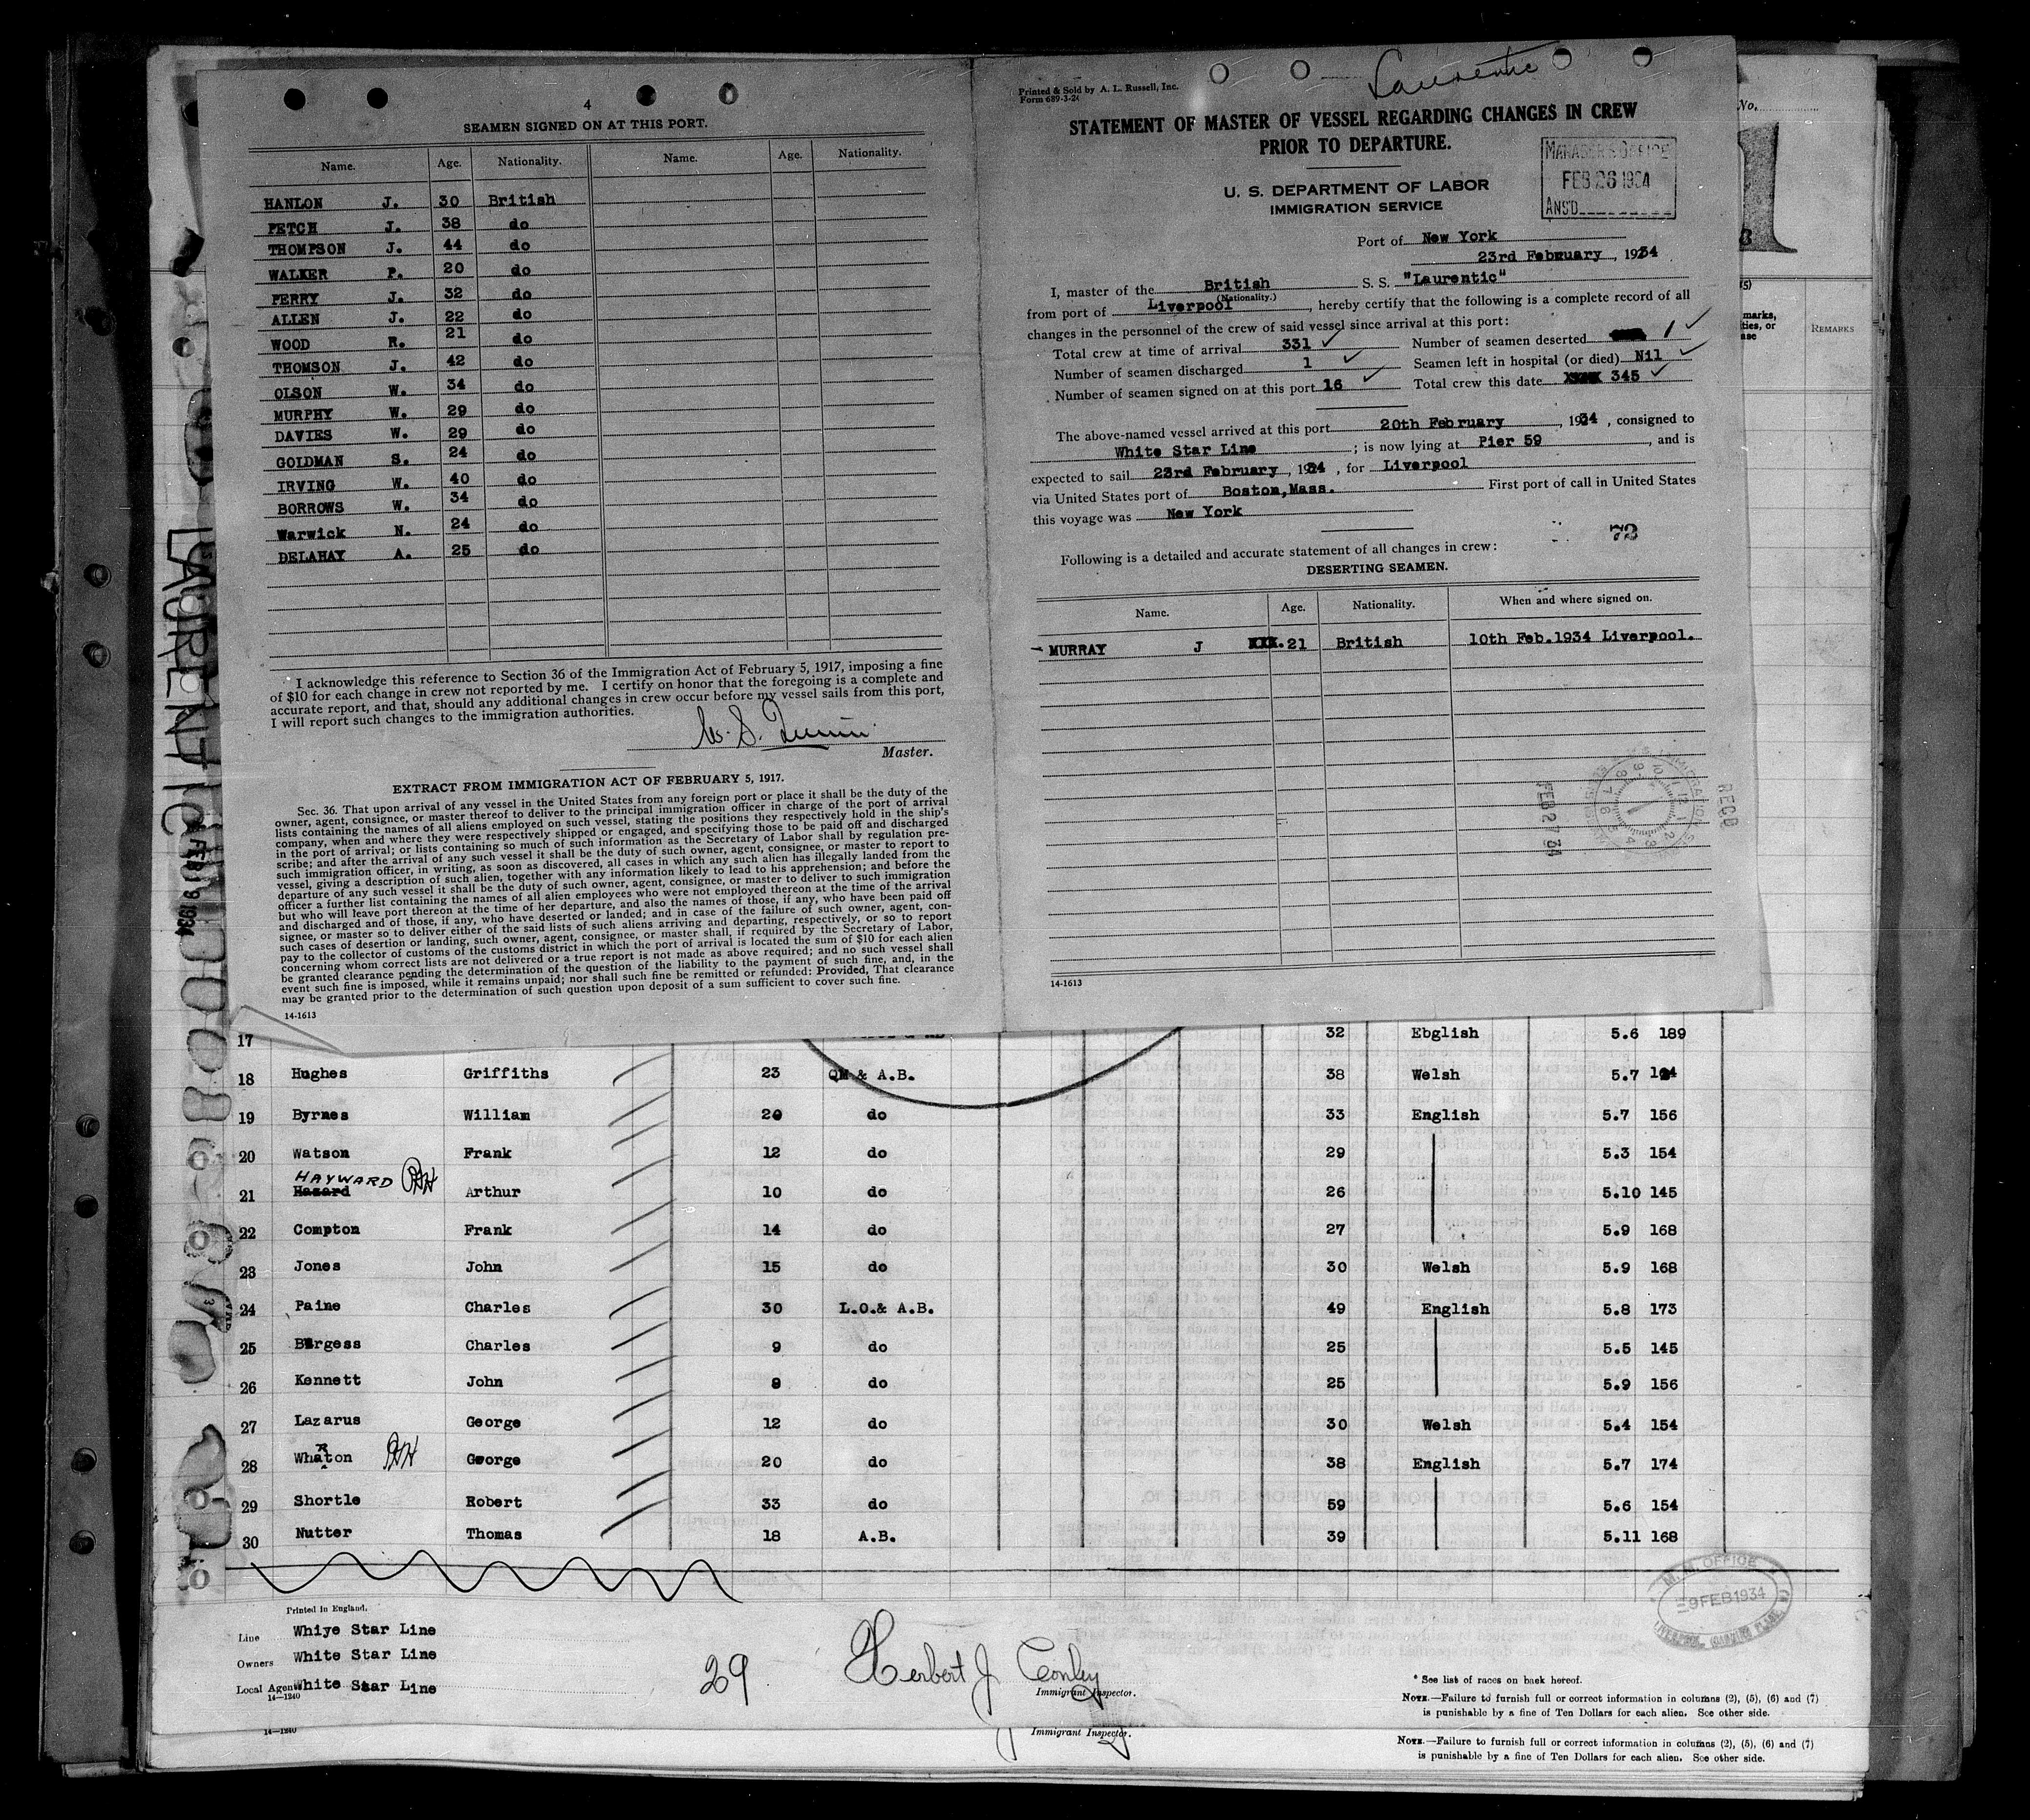 4
SEAMEN SIGNED ON AT THIS PORT.
Name. Age. Nationality. Name. Age. Nationality.
HANLON J. 30 British
PETCH J. 38 do
THOMPSON J. 44 do
WALKER P. 20 do
PERRY J. 32 do
ALLEN J. 22 do
WOOD R. 21 do
THOMSON J. 42 do
OLSON W. 34 do
MURPHY W. 29 do
DAVIES W. 29 do
GOLDMAN S. 24 do
IRVING W. 40 do
BORROWS W. 34 do
Warwick N. 24 do
DELAHAY A. 25 do
I acknowledge this reference to Section 36 of the Immigration Act of February 5, 1917, imposing a fine
of $10 for each change in crew not reported by me. I certify on honor that the foregoing is a complete and
accurate report, and that, should any additional changes in crew occur before my vessel sails from this port,
I will report such changes to the immigration authorities.
Master.
EXTRACT FROM IMMIGRATION ACT OF FEBRUARY 5, 1917.
Sec. 36. That upon arrival of any vessel in the United States from any foreign port or place it shall be the duty of the
owner, agent, consignee, or master thereof to deliver to the principal immigration officer in charge of the port of arrival
lists containing the names of all aliens employed on such vessel, stating the positions they respectively hold in the ship's
company, when and where they were respectively shipped or engaged, and specifying those to be paid off and discharged
in the port of arrival; or lists containing so much of such information as the Secretary of Labor shall by regulation pre-
scribe; and after the arrival of any such vessel it shall be the duty of such owner, agent, consignee, or master to report to
such immigration officer, in writing, as soon as discovered, all cases in which any such alien has illegally landed from the
vessel, giving a description of such alien, together with any information likely to lead to his apprehension; and before the
departure of any such vessel it shall be the duty of such owner, agent, consignee, or master to deliver to such immigration
officer a further list containing the names of all alien employees who were not employed thereon at the time of the arrival
but who will leave port thereon at the time of her departure, and also the names of those, if any, who have been paid off
and discharged and of those, if any, who have deserted or landed; and in case of the failure of such owner, agent, con-
signee, or master so to deliver either of the said lists of such aliens arriving and departing, respectively, or so to report
such cases of desertion or landing, such owner, agent, consignee, or master shall, if required by the Secretary of Labor,
pay to the collector of customs of the customs district in which the port of arrival is located the sum of $10 for each alien
concerning whom correct lists are not delivered or a true report is not made as above required; and no such vessel shall
be granted clearance pending the determination of the question of the liability to the payment of such fine, and, in the
event such fine is imposed, while it remains unpaid; nor shall such fine be remitted or refunded: Provided, That clearance
may be granted prior to the determination of such question upon deposit of a sum sufficient to cover such fine.
14-1613
Laurentic
Printed & Sold by A. L. Russell, Inc.
Form 689-3-24
STATEMENT OF MASTER OF VESSEL REGARDING CHANGES IN CREW
PRIOR TO DEPARTURE.
MANAGER'S OFFICE
FEB 26 1934
ANS'D
U. S. DEPARTMENT OF LABOR
IMMIGRATION SERVICE
Port of New York
23rd February, 1934
I, master of the British S. S. "Laurentic"
(Nationality.)
from port of Liverpool, hereby certify that the following is a complete record of all
changes in the personnel of the crew of said vessel since arrival at this port:
Total crew at time of arrival 331 ✓ Number of seamen deserted 1 ✓
Number of seamen discharged 1 ✓ Seamen left in hospital (or died) Nil ✓
Number of seamen signed on at this port 16 ✓ Total crew this date 345 ✓
The above-named vessel arrived at this port 20th February, 1934, consigned to
White Star Line; is now lying at Pier 59, and is
expected to sail 23rd February, 1934, for Liverpool
via United States port of Boston,Mass. First port of call in United States
this voyage was New York
73
Following is a detailed and accurate statement of all changes in crew:
DESERTING SEAMEN.
Name. Age. Nationality. When and where signed on.
- MURRAY J XXX.21 British 10th Feb.1934 Liverpool.
FEB 27 34
RECD
14-1613
No.
marks,
ties, or
REMARKS
LAURENTIC
FEB 19 1934
17 32 Ebglish 5.6 189
18 Hughes Griffiths 23 QM & A.B. 38 Welsh 5.7
19 Byrnes William 20 do 33 English 5.7 156
20 Watson Frank 12 do 29 5.3 154
HAYWARD
21 Hazard Arthur 10 do 26 5.10 145
22 Compton Frank 14 do 27 5.9 168
23 Jones John 15 do 30 Welsh 5.9 168
24 Paine Charles 30 L.O.& A.B. 49 English 5.8 173
25 Burgess Charles 9 do 25 5.5 145
26 Kennett John 8 do 25 5.9 156
27 Lazarus George 12 do 30 Welsh 5.4 154
R
28 Whaton George 20 do 38 English 5.7 174
29 Shortle Robert 33 do 59 5.6 154
30 Nutter Thomas 18 A.B. 39 5.11 168
M. M. OFFICE
9 FEB 1934
Printed in England.
Line Whiye Star Line
Owners White Star Line
Local Agents White Star Line
14—1240
29
Herbert J Conley
Immigrant Inspector.
* See list of races on back hereof.
NOTE.—Failure to furnish full or correct information in columns (2), (5), (6) and (7)
is punishable by a fine of Ten Dollars for each alien. See other side.
14—1240
Immigrant Inspector.
NOTE.—Failure to furnish full or correct information in columns (2), (5), (6) and (7)
is punishable by a fine of Ten Dollars for each alien. See other side.